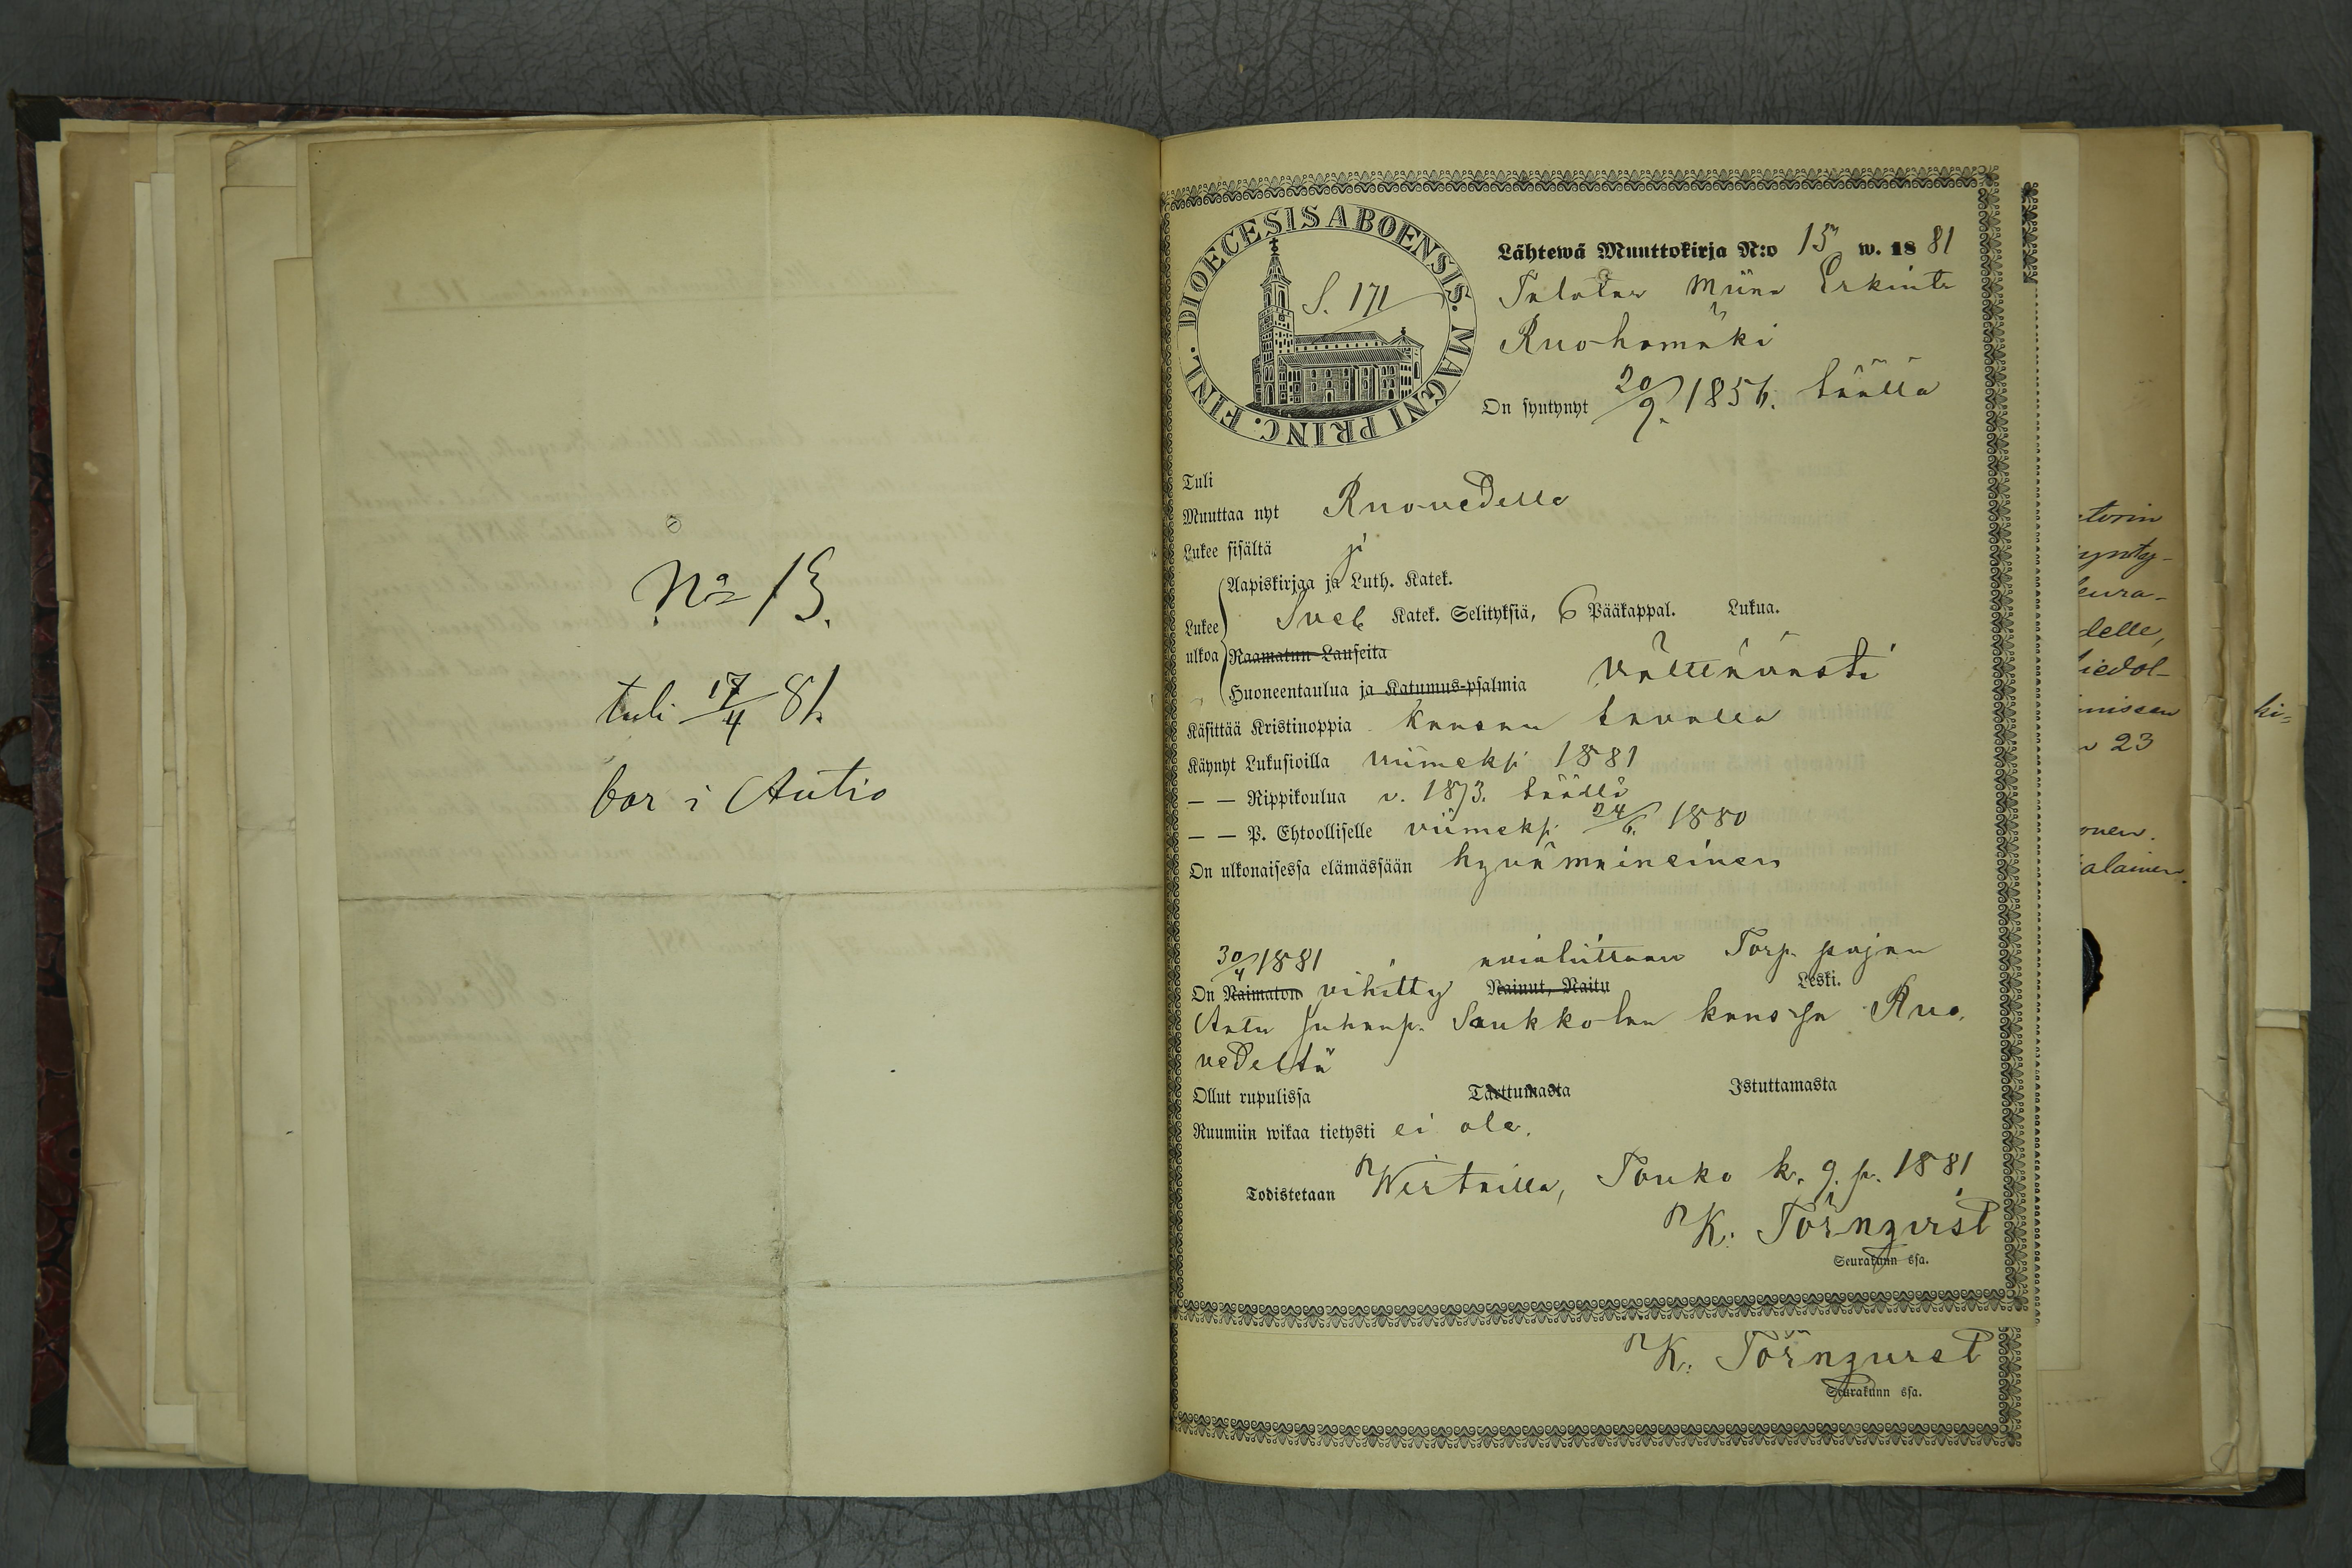 No 13.
tuli 17/4 81.
bor i Autio
DIOECESIS ABOENSIS. MAGNI PRINC. FINL.
S. 171
Lähtewä Muuttokirja N:o 15 w. 1881
Talolan Miina Erkint
Ruohomäki
On syntynyt 20/9. 1856. täällä
Tuli
Muuttaa nyt Ruovedelle
Lukee sisältä
Aapiskirjaa ja Luth. Katek.
Lukee Sveb Katek. Selityksiä, 6 Pääkappal. Lukua.
ulkoa Raamatun Lauseita
Huoneentaulua ja Katumus-psalmia välttävästi
Käsittää Kristinoppia kansan tavalla
Käynyt Lukusioilla viimeksi 1881
— — Rippikoulua v. 1873. täällä
— — P. Ehtoolliselle viimeksi 24/6. 1880
On ulkonaisessa elämässään hyvämaineinen
30/4 1881 avioliittoon Torp. pojan
On Naimaton vihitty Nainut, Naitu Leski.
Antu Juhanp. Saukkolan kanssa Ruo,
vedeltä
Ollut rupulissa Tarttumasta Istuttamasta
Ruumiin wikaa tietysti ei ole.
Todistetaan Wirtailla, Touko k. 9. p. 1881
K. Törnqvist
Seurakunn ssa.
K. Törnqvist
Seurakunn ssa.
etorin
synty-
seura-
delle,
23
onen.
alainen.
ki-